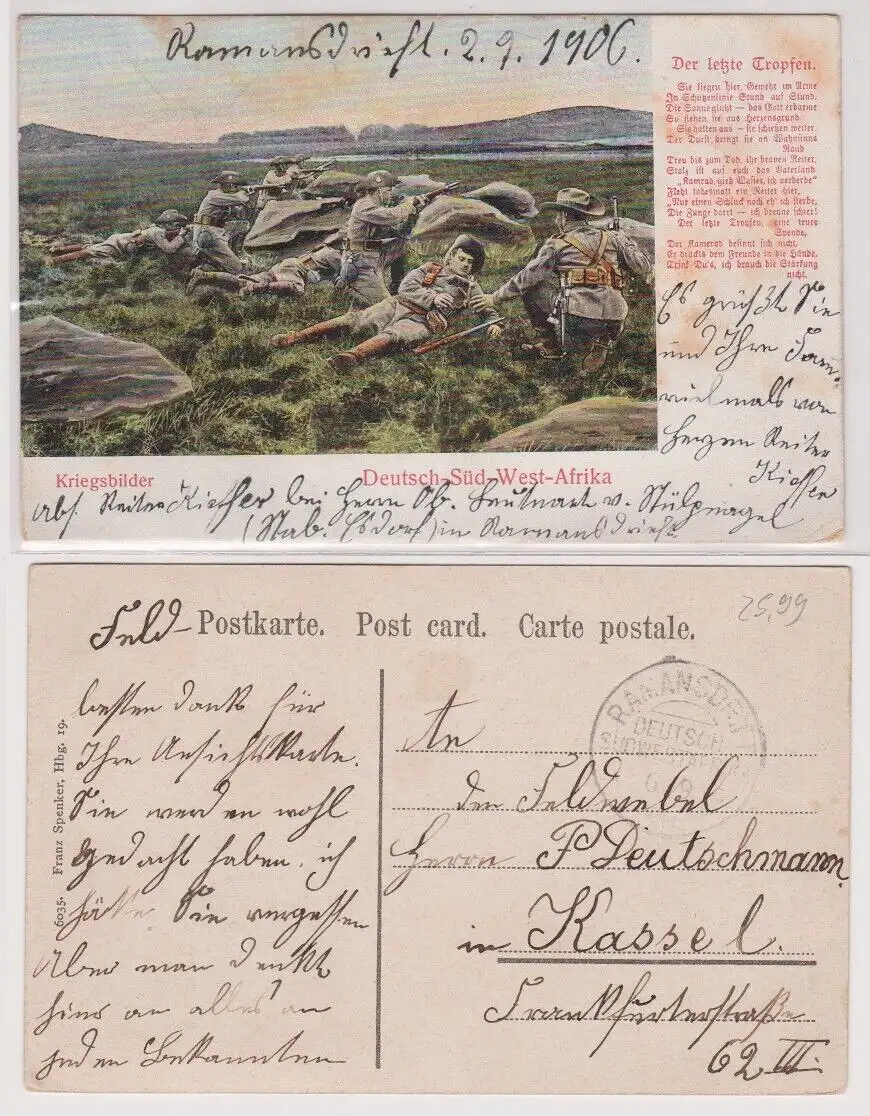 Ramansdrift. 2.9.1906.
Der letzte Tropfen.
Sie liegen hier, Gewehr im Arme
In Schützenlinie Stund auf Stund.
Die Sonne glüht — das Gott erbarme
So stehen sie aus Herzensgrund
Sie halten aus — sie schießen weiter.
Der Durst bringt sie an Wahnsinns
Rand
Treu bis zum Tod, ihr braven Reiter,
Stolz ist auf euch das Vaterland
„Kamrad, gieb Wasser, ich verderbe"
Fleht todesmatt ein Reiter hier,
„Nur einen Schluck noch eh' ich sterbe,
Die Zunge dorrt — ich brenne schier!
Der letzte Tropfen, eine teure
Spende,
Der Kamerad besinnt sich nicht,
Er drückts dem Freunde in die Hände,
Trink Du's, ich brauch die Stärkung
nicht.
Es grüßt Sie
und Ihre Fam.
vielmals von
Herzen Reiter
Kieffer
Kriegsbilder
Deutsch-Süd-West-Afrika
Abs. Reiter Kieffer bei Herrn Ob. Leutnant v. Stülpnagel
(Stab. Esdorf) in Ramansdrift.
25,99
Feld-Postkarte. Post card. Carte postale.
6035. Franz Spenker, Hbg. 19.
besten Dank für
Ihre Ansichtskarte.
Sie werden wohl
gedacht haben, ich
hätte Sie vergessen
Aber man denkt
hier an alles an
jeden Bekannten
RAMANSDRIFT
DEUTSCH
SÜDWESTAFRIKA
An
den Feldwebel
Herrn P Deutschmann
in Kassel.
Frankfurterstraße
62 III.